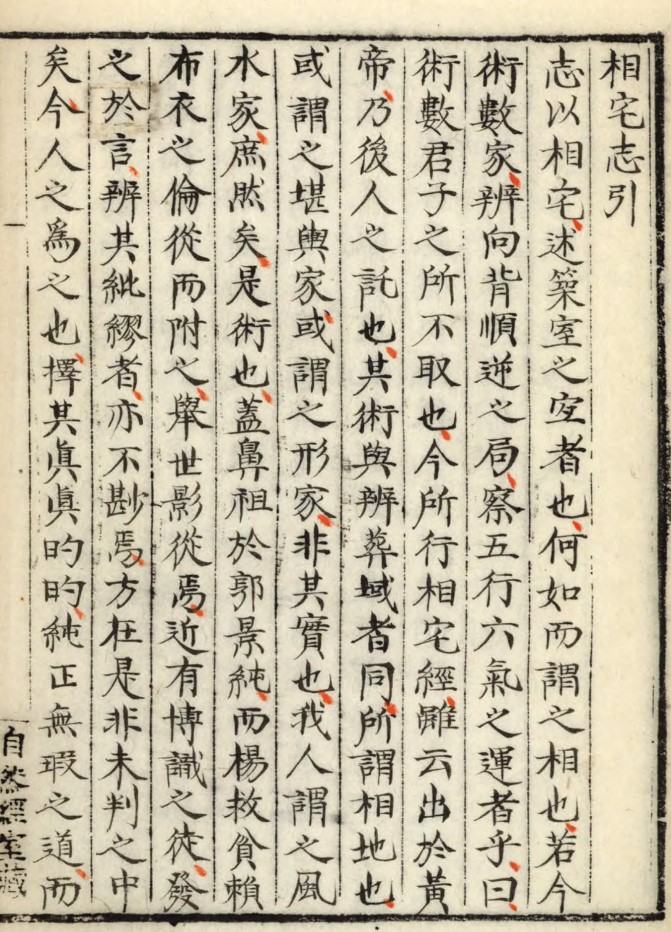 相宅志引
志以相宅述築室之宜者也何如而謂之相也若今
術數家辨向背順逆之局察五行六氣之運者乎曰
術數君子之所不取也今所行相宅經雖云出於黃
帝乃後人之託也其術與辨葬域者同所謂相地也
或謂之堪輿家或謂之形家非其實也我人謂之風
水家庶然矣是術也蓋鼻祖於郭景純而楊救貧賴
布衣之倫從而附之舉世影從焉近有博識之徒發
之於言辨其紕繆者亦不尠焉方枉是非未判之中
矣今人之為之也擇其眞眞昀昀純正無瑕之道而
自然經室藏